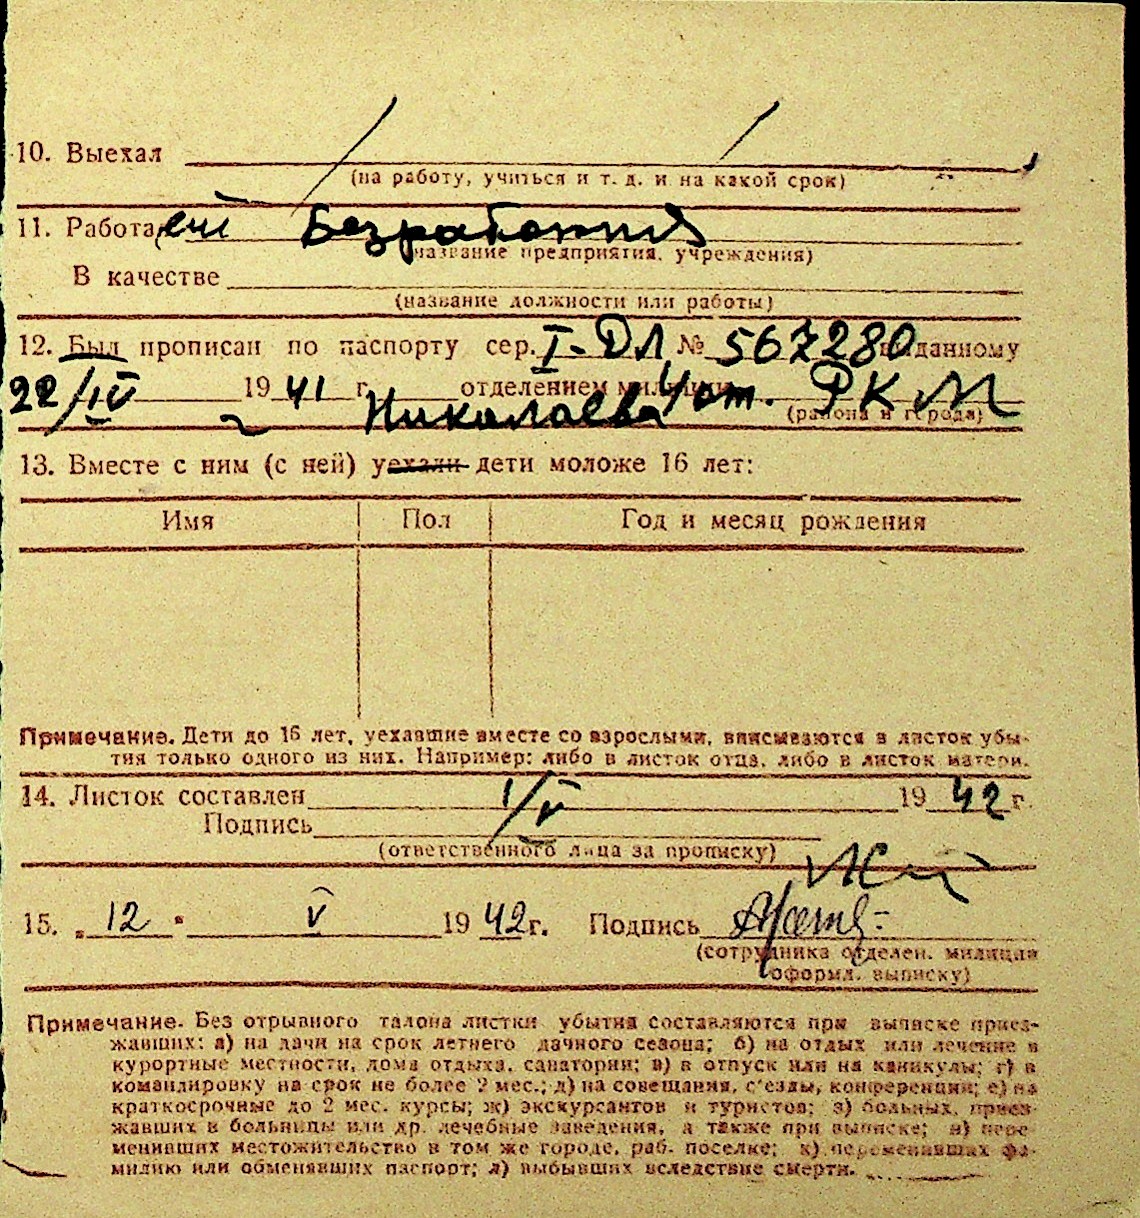 10. Выехал
(на работу, учиться и т. д. и на какой срок)
11. Работа Безработная
(название предприятия, учреждения)
В качестве
(название должности или работы)
12. Был прописан по паспорту сер. I-ДЛ № 567280 выданному
22/IV 1941 г. отделением милиции 4 от. РКМ
г. Николаева (района и города)
13. Вместе с ним (с ней) уехали дети моложе 16 лет:
Имя Пол Год и месяц рождения
Примечание. Дети до 16 лет, уехавшие вместе со взрослыми, вписываются в листок убы-
тия только одного из них. Например: либо в листок отца, либо в листок матери.
14. Листок составлен 1/V 1942 г.
Подпись
(ответственного лица за прописку)
15. „12" V 1942 г. Подпись
(сотрудника отделен. милиции
оформл. выписку)
Примечание. Без отрывного талона листки убытия составляются при выписке приез-
жавших: а) на дачи на срок летнего дачного сезона; б) на отдых или лечение в
курортные местности, дома отдыха, санатории; в) в отпуск или на каникулы; г) в
командировку на срок не более 2 мес.; д) на совещания, с'езды, конференции; е) на
краткосрочные до 2 мес. курсы; ж) экскурсантов и туристов; з) больных, приез-
жавших в больницы или др. лечебные заведения, а также при выписке; и) пере-
менивших местожительство в том же городе, раб. поселке; к) переменивших фа-
милию или обменявших паспорт; л) выбывших вследствие смерти.